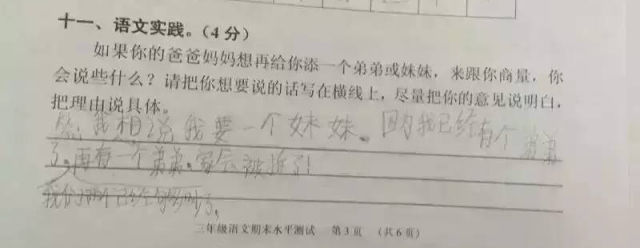 十一、语文实践。（4分）
如果你的爸爸妈妈想再给你添一个弟弟或妹妹，来跟你商量，你
会说些什么？请把你想要说的话写在横线上，尽量把你的意见说明白，
把理由说具体。
我想说我要一个妹妹。因为我已经有个弟弟
了。再有一个弟弟。家会被拆了！
我们两个已经够
三年级语文期末水平测试 第3页 （共6页）